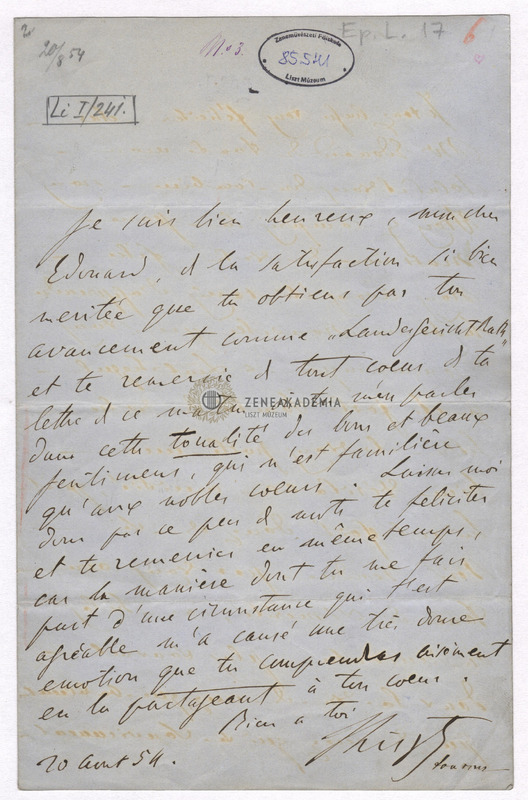 2
20/8 54
No 3.
Zeneművészeti Főiskola
85.541
Liszt Múzeum
Ep. L. 17
6
Li I/241.
Je suis bien heureux, mon cher
Edouard, de la satisfaction si bien
meritée que tu obtiens par ton
avancement comme „Landesgericht Rath"
et te remercie de tout coeur de ta
lettre de ce matin où tu m'en parles
dans cette tonalité des bons et beaux
sentimens, qui n'est familière
qu'aux nobles coeurs. Laisse moi
donc par ce peu de mots te feliciter
et te remercier en même temps,
car la manière dont tu me fais
part d'une circonstance qui t'est
agréable m'a causé une très douce
emotion que tu comprendras aisément
en la partageant à ton coeur.
Bien à toi
FLiszt
20 aout 54.
ZENEAKADÉMIA
LISZT MÚZEUM